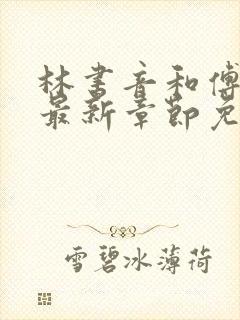 林书音和傅
最新章节免
雪碧冰薄荷